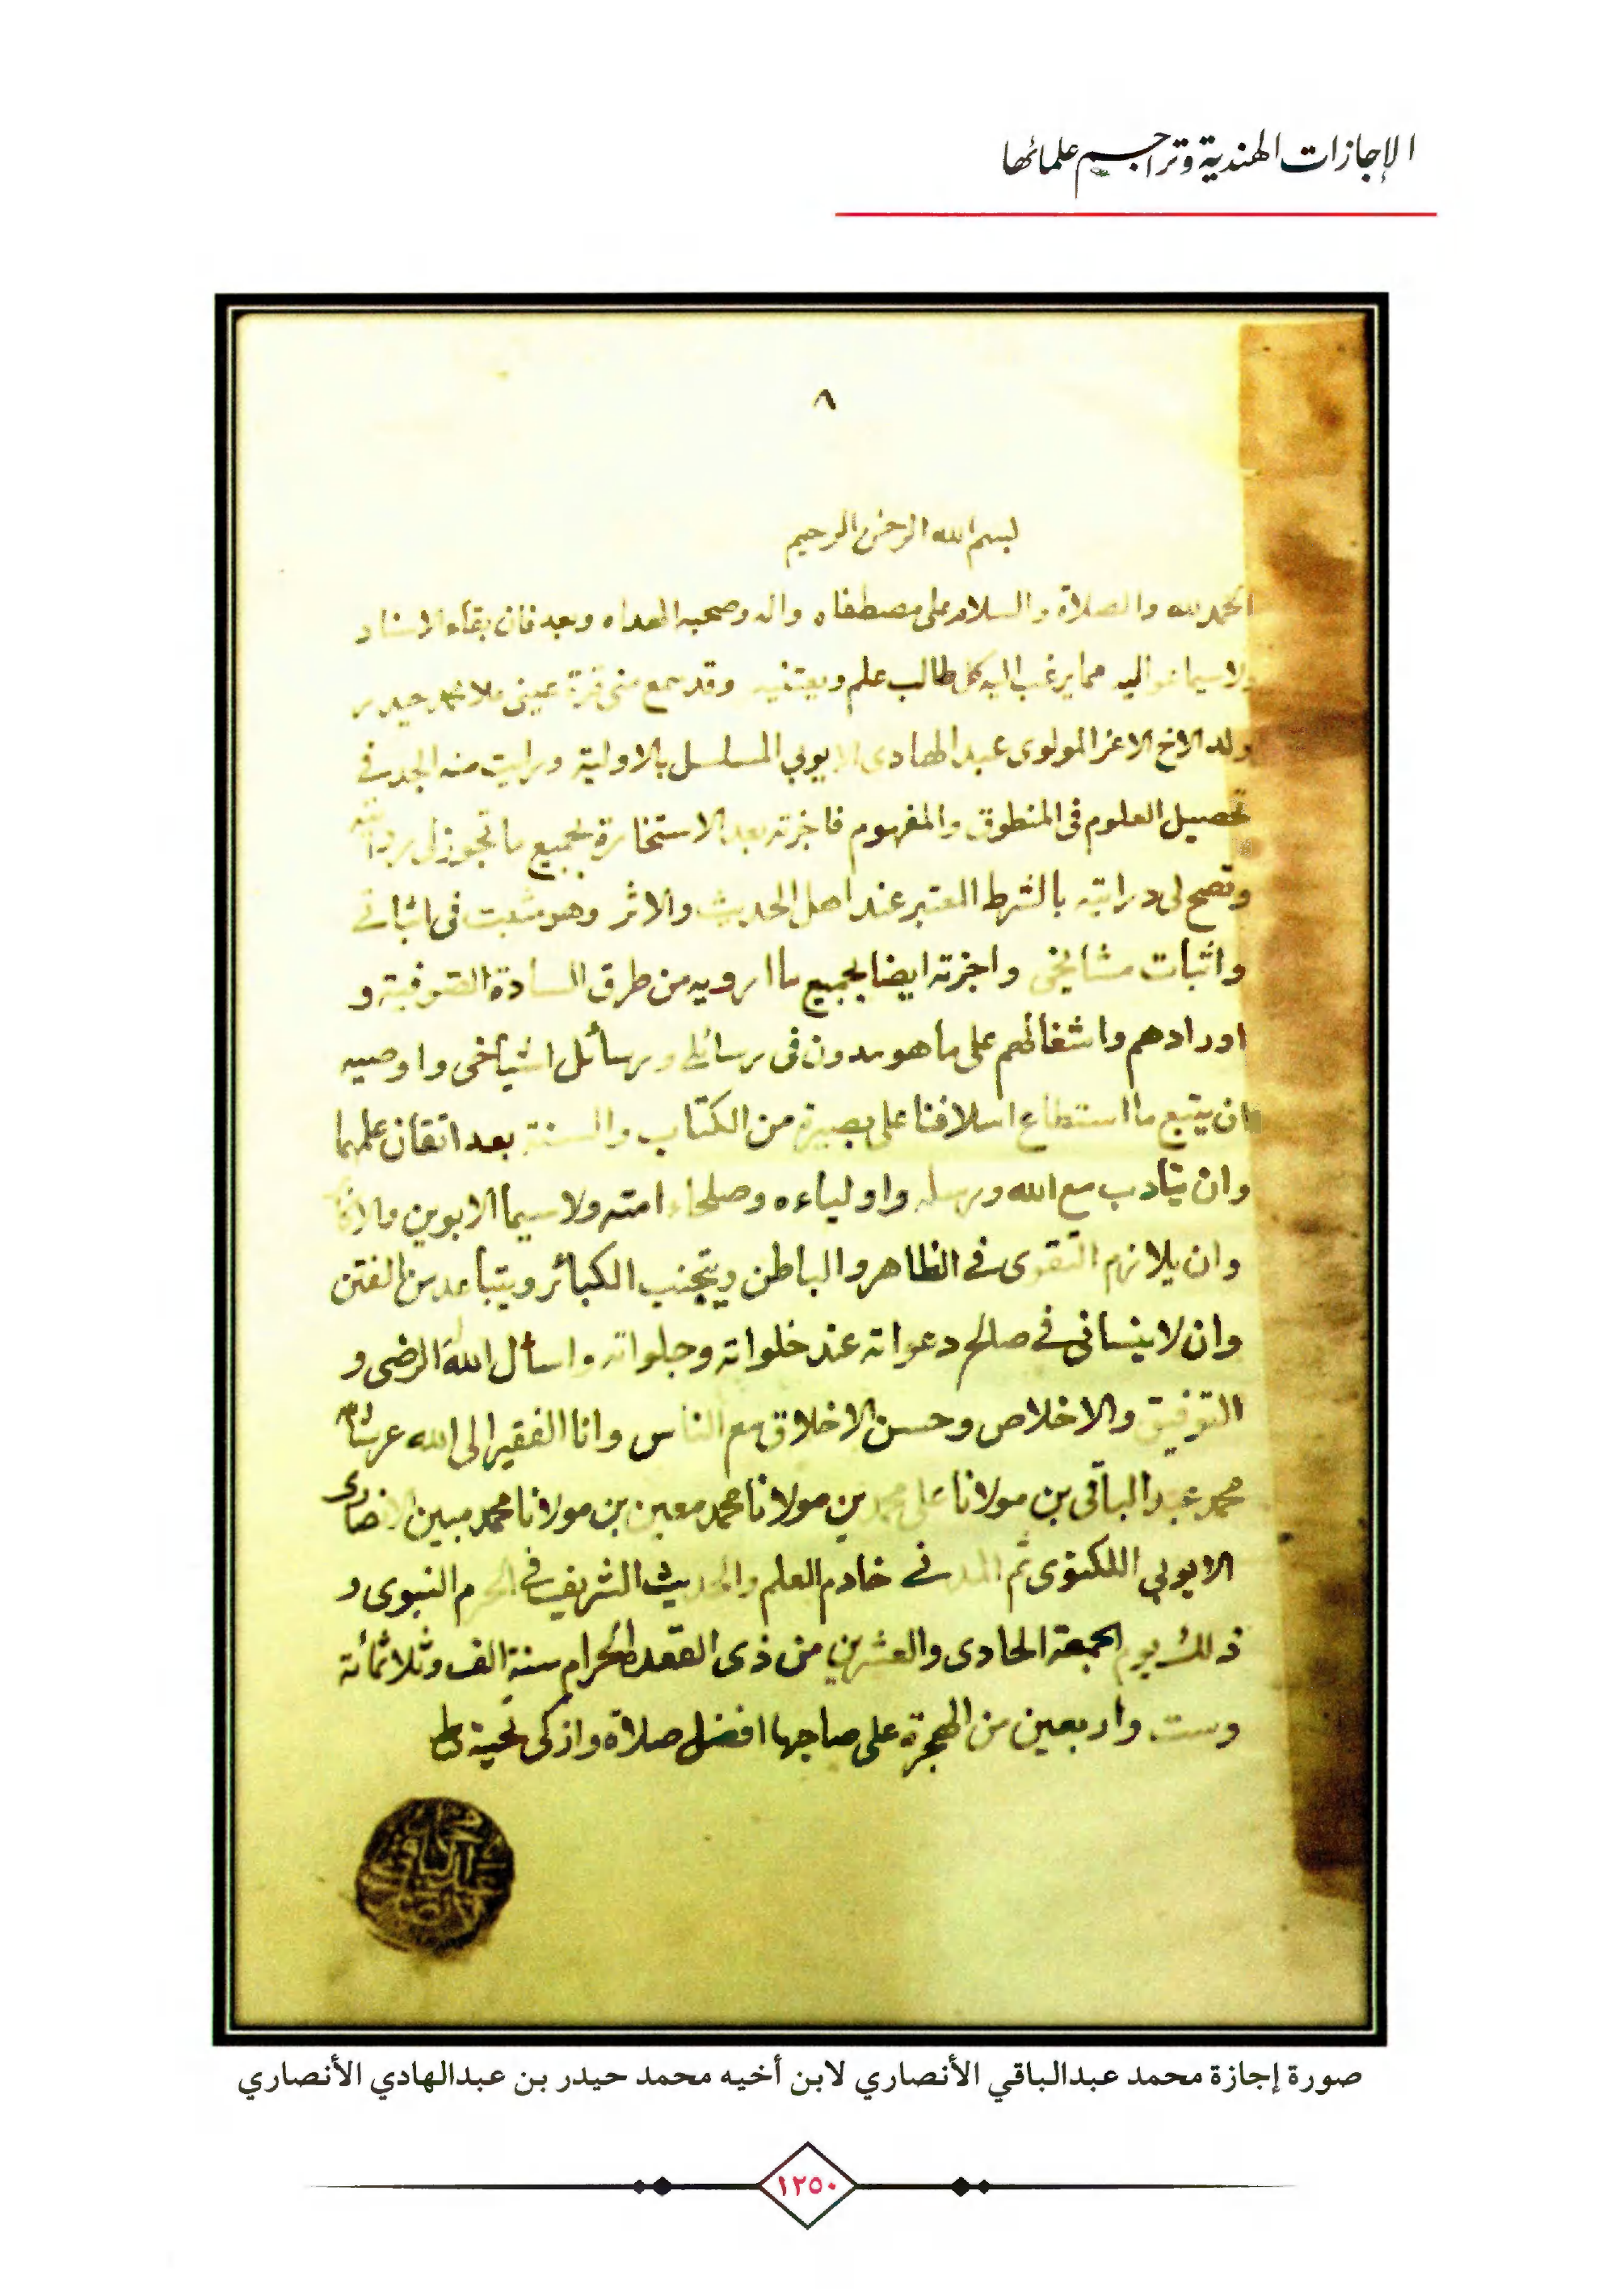 الإجازات الهندية وتراجم علمائها
٨
بسم الله الرحمن الرحيم
الحمد لله والصلاة والسلام على مصطفاه واله وصحبه الهداه وبعد فان بقاء الاسناد
ولاسيما عواليه مما يرغب اليه كل طالب علم ويعتنيه وقد سمع منى قرة عينى ملا محمد حيدر
ولد الاخ الاعز المولوى عبد الهادى الايوبي المسلسل بالاولية ورايت منه الجد في
تحصيل العلوم فى المنطوق والمفهوم فاجزته بعد الاستخارة بجميع ما تجوز لى روايته
وتصح لى درايته بالشرط المعتبر عند اهل الحديث والاثر وهو مثبت فى اثباتي
واثبات مشايخي واجزته ايضا بجميع ما ارويه من طرق السادة الصوفية و
اورادهم واشغالهم على ما هو مدون فى رسائلي ورسائل اشياخى واوصيه
ان يتبع ما استطاع اسلافنا على بصيرة من الكتاب والسنة بعد اتقان علمهما
وان يتادب مع الله ورسله واولياءه وصلحاء امته ولا سيما الابوين
وان يلازم التقوى في الظاهر والباطن ويتجنب الكبائر ويتباعد من الفتن
وان لا ينسانى في صالح دعواته عند خلواته وجلواته واسأل الله لى وله الرضى و
التوفيق والاخلاص وحسن الاخلاق مع الناس وانا الفقير الى الله عز شأنه
محمد عبد الباقى بن مولانا على محمد بن مولانا محمد معين بن مولانا محمد مبين الانصارى
الايوبي اللكنوى ثم المدني خادم العلم والحديث الشريف في الحرم النبوى و
ذلك يوم الجمعة الحادى والعشرين من ذى القعدة الحرام سنة الف وثلاثمائة
وست واربعين من الهجرة على صاحبها افضل صلاة وازكى تحية
محمد عبد الباقي
صورة إجازة محمد عبدالباقي الأنصاري لابن أخيه محمد حيدر بن عبدالهادي الأنصاري
١٢٥٠